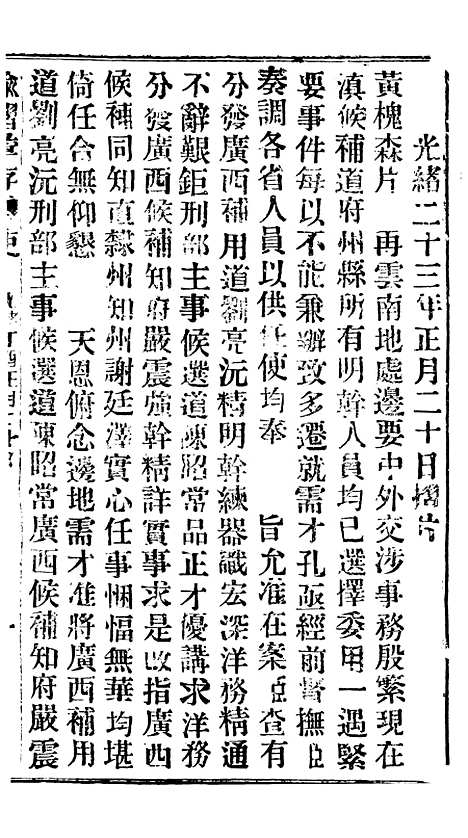 光緒二十三年正月二十日摺片
黃槐森片　再雲南地處邊要中外交涉事務殷繁現在
滇候補道府州縣所有明幹人員均已選擇委用一遇緊
要事件每以不能兼辦致多遷就需才孔亟經前督撫臣
奏調各省人員以供任使均奉　旨允准在案臣查有
分發廣西補用道劉亮沅精明幹練器識宏深洋務精通
不辭艱鉅刑部主事候選道陳昭常品正才優講求洋務
分發廣西候補知府嚴震強幹精詳實事求是改指廣西
候補同知直隸州知州謝廷澤實心任事悃愊無華均堪
倚任合無仰懇　天恩俯念邊地需才准將廣西補用
道劉亮沅刑部主事候選道陳昭常廣西候補知府嚴震
諭摺彙存